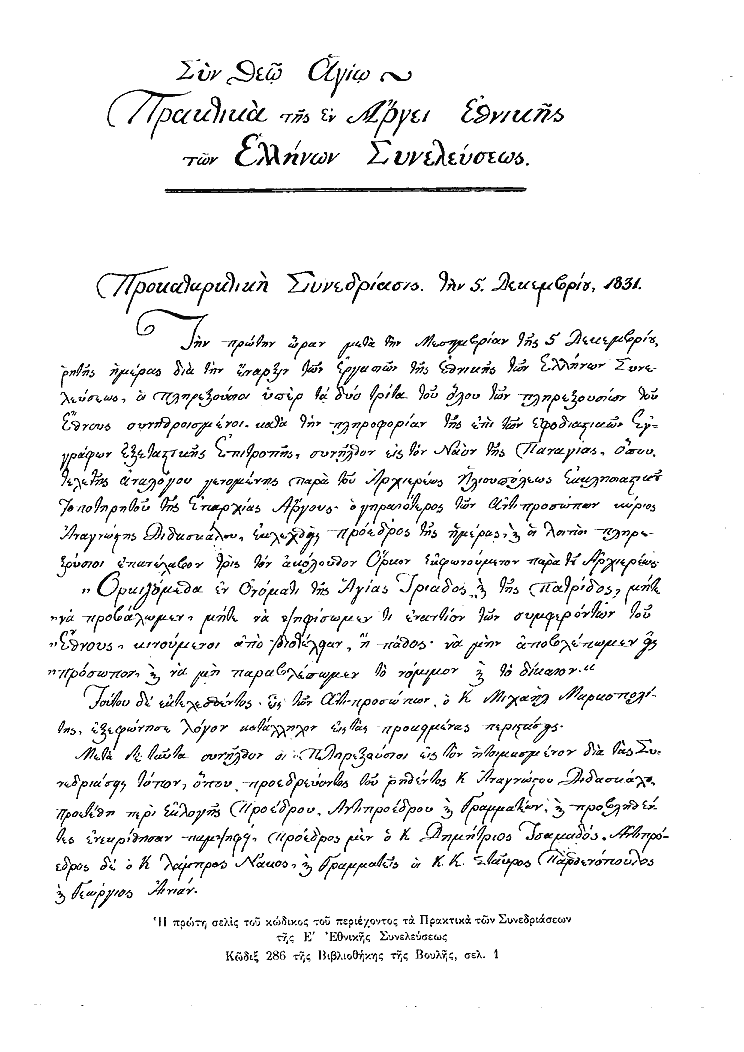 Σὺν Θεῷ Ἁγίῳ
Πρακτικὰ τῆς ἐν Ἄργει Ἐθνικῆς
τῶν Ἑλλήνων Συνελεύσεως.
Προκαταρκτικὴ Συνεδρίασις. τὴν 5. Δεκεμβρίου, 1831.
Τὴν πρώτην ὥραν μετὰ τὴν Μεσημβρίαν τῆς 5 Δεκεμβρίου,
ῥητῆς ἡμέρας διὰ τὴν ἔναρξιν τῶν ἐργασιῶν τῆς ἐθνικῆς τῶν Ἑλλήνων Συνε-
λεύσεως, οἱ πληρεξούσιοι ὑπὲρ τὰ δύο τρίτα τοῦ ὅλου τῶν πληρεξουσίων τοῦ
Ἔθνους συνηθροισμένοι κατὰ τὴν πληροφορίαν τῆς ἐπὶ τῶν ἐφοδιαστικῶν ἐγ-
γράφων Ἐξεταστικῆς Ἐπιτροπῆς, συνῆλθον εἰς τὸν Ναὸν τῆς Παναγίας, ὅπου,
τελετῆς ἀναλόγου γενομένης παρὰ τοῦ Ἀρχιερέως Ἡλιουπόλεως Ἐκκλησιαστικοῦ
Τοποτηρητοῦ τῆς Ἐπαρχίας Ἄργους· ὁ γηραιότερος τῶν Ἀντιπροσώπων κύριος
Ἀναγνώστης Διδασκάλου, ἐκλεχθεὶς πρόεδρος τῆς ἡμέρας, ϗ οἱ λοιποὶ πληρε-
ξούσιοι ἐπανέλαβον τρὶς τὸν ἀκόλουθον Ὅρκον ἐκφωνούμενον παρὰ τοῦ Ἀρχιερέως.
„Ὁρκιζόμεθα ἐν Ὀνόματι τῆς Ἁγίας Τριάδος, ϗ τῆς Πατρίδος, μήτε
„νὰ προβάλωμεν, μήτε νὰ ψηφίσωμεν τι ἐναντίον τῶν συμφερόντων τοῦ
„Ἔθνους, κινούμενοι ἀπὸ ἰδιοτέλειαν, ἢ πάθος· νὰ μὴν ἀποβλέπωμεν εἰς
„πρόσωπον, ϗ νὰ μὴ παραβλέσωμεν τὸ νόμιμον ϗ τὸ δίκαιον.“
Τούτου δὲ ἐκτελεσθέντος, εἷς τῶν Ἀντιπροσώπων, ὁ Κ Μιχαὴλ Μαρκοπολί-
της, ἐξεφώνησε λόγον κατάλληλον εἰς τὰς προκειμένας περιστάσεις.
Μετὰ δὲ ταῦτα συνῆλθον οἱ Πληρεξούσιοι εἰς τὸν ἡτοιμασμένον διὰ τὰς Συ-
νεδριάσεις τόπον, ὅπου, προεδρεύοντος τοῦ ῥηθέντος Κ Ἀναγνώστου Διδασκάλου,
προετέθη περὶ Ἐκλογῆς Προέδρου, Ἀντιπροέδρου ϗ Γραμματέων, ϗ προβληθέν-
τες ἐνεκρίθησαν παμψηφεὶ, Πρόεδρος μὲν ὁ Κ Δημήτριος Τσαμαδός, Ἀντιπρό-
εδρος δὲ ὁ Κ Λάμπρος Νάκος, ϗ Γραμματεῖς οἱ Κ.Κ. Σταῦρος Παρθενόπουλος
ϗ Γεώργιος Αἰνιάν.
Ἡ πρώτη σελὶς τοῦ κώδικος τοῦ περιέχοντος τὰ Πρακτικὰ τῶν Συνεδριάσεων
τῆς Ε΄ Ἐθνικῆς Συνελεύσεως
Κῶδιξ 286 τῆς Βιβλιοθήκης τῆς Βουλῆς, σελ. 1